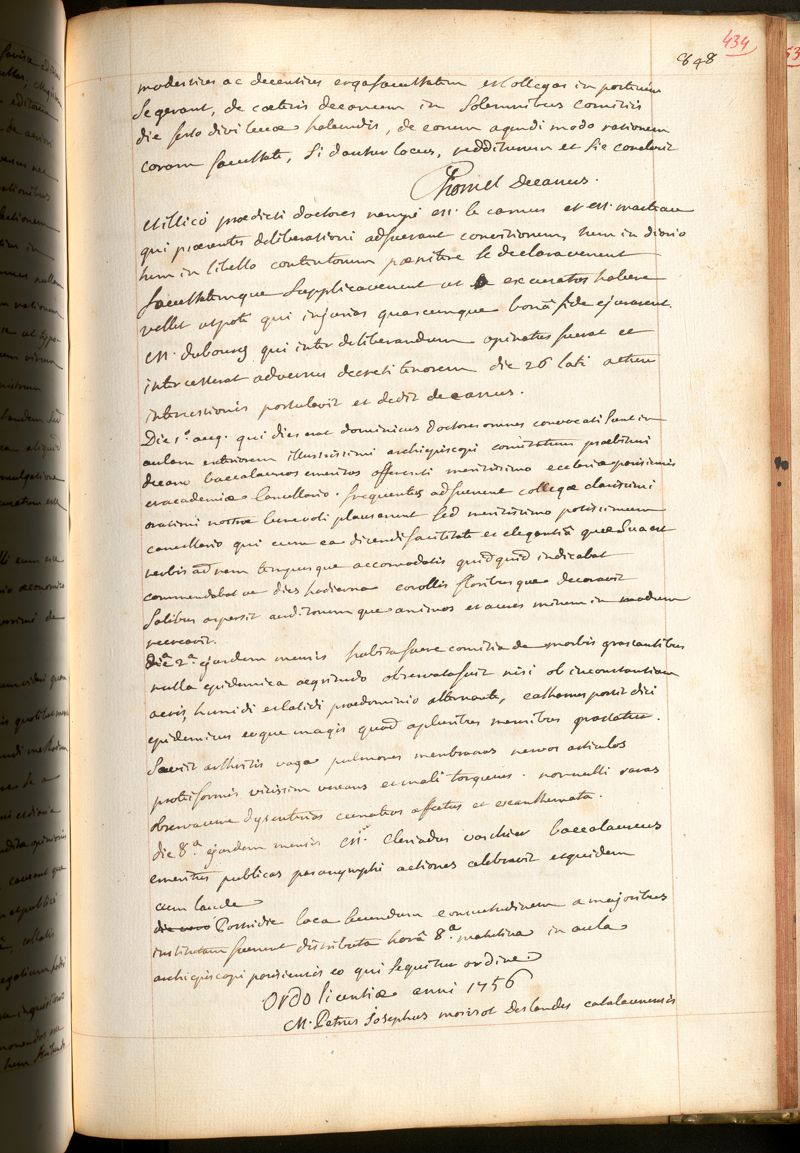 434
848
modestius ac decentius erga facultatem et collegas in posterum
se gerant, de caeteris decanum in solemnibus comitiis
die festo divi lucae habendis, de eorum agendi modo rationem
coram facultate, si dantur locus, redditurum et sic conclusit
Chomel decanus.
et illico praedicti doctores nempe M. le camus et M.
qui praesentes deliberationi adfuerant convitiorum, tum in diario
tum in libello contentorum paenitere se declaraverunt
facultatemque supplicaverunt ut excusatos habere
vellet utpote qui injurias quascumque bonâ fide ejurarent.
M. dubourg qui inter deliberandum opinatus fuerat et
intercesserat adversus decreti tenorem die 26 lati actum
intercessionis postulavit et dedit decanus.
Die 1.ª aug. qui dies erat dominicus doctores omnes convocati sunt in
aulam exteriorem illustrissimi archiepiscopi comitatum praebituri
decano baccalaureos emeritos offerenti meritissimo ecclesiae parisiensis
et academiae cancellario. frequentes adfuerunt collegae clarissimi
orationi nostrae benevoli plauserunt sed meritissimo potissimum
cancellario qui cum ea dicendi facultate et elegantiâ quae sua est
verbis ad rem tempusque accomodatis quidquid indicabat
commendabat ac dies hodierna corollis floribusque decoravit
salibus aspersit auditorumque animos et aures mirum in modum
recreavit.
die 2.ª ejusdem mensis habita fuere comitia de morbis grassantibus
nulla epidemica aegritudo observata fuit nisi ob inconstantiam
aeris, humidi et calidi praedominio alternante, catharrus possit dici
epidemicus eoque magis quod a pluribus mensibus grassatur.
Saevit arthritis vaga pulmones membranas nervos articulos
proteiformis vicissim vexans et mali torquens. nonnulli raras
observavere dysenterias cruentas affectus et exanthemata.
die 8.ª ejusdem mensis M. Cleriadus vachier baccalaureus
emeritus publicas paranymphi actiones celebravit et quidem
cum laude
die vero Postridie loca secundum consuetudinem a majoribus
institutam fuerunt distributa horâ 8.ª matutina in aula
archiepiscopi parisiensis eo qui sequitur ordine.
Ordo licentiae anni 1756
M. Petrus Josephus morisot Deslandes catalaunensis